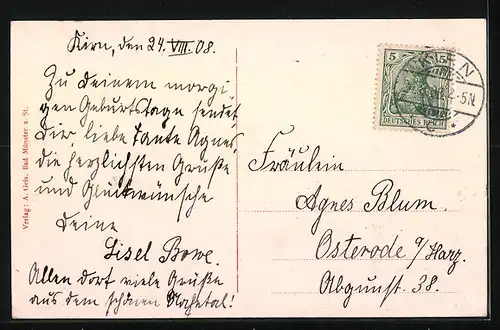 Kirn, den 24. VIII. 08.
Zu Deinem morgi-
gen Geburtstage sendet
Dir liebe Tante Agnes,
die herzlichsten Grüße
und Glückwünsche
Deine
Lisel Bowe.
Allen dort viele Grüße
aus dem schönen Nahetal!
Verlag: A. Geis, Bad Münster a. St.
5 5
DEUTSCHES REICH
Fräulein
Agnes Blum.
Osterode a/Harz.
Abgunst 38.